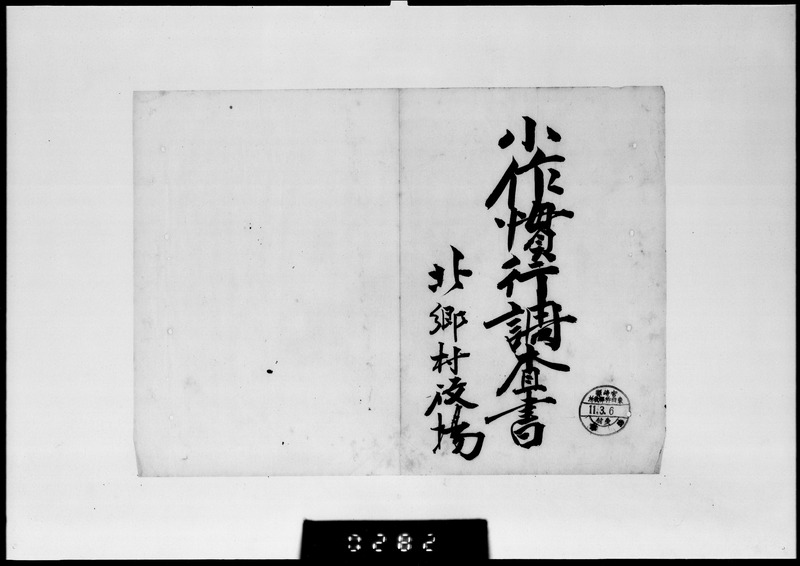 小作慣行調査書
北郷村役場
11.3.6
0282